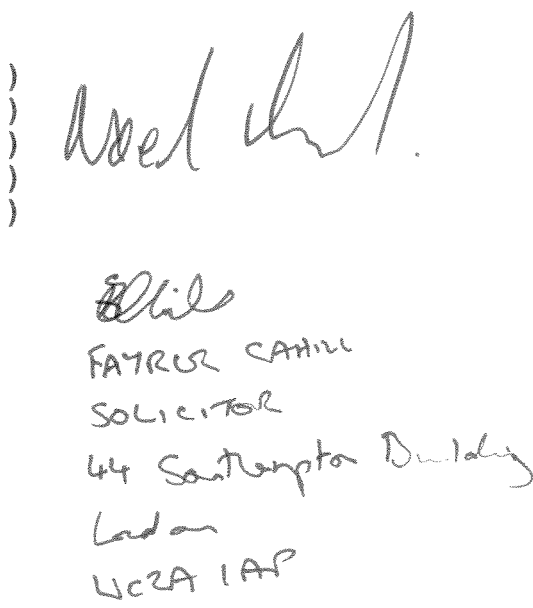 )
)
)
)
)
Noel
FAYRER CAHILL
SOLICITOR
44 Southampton Building
London
WC2A 1AP